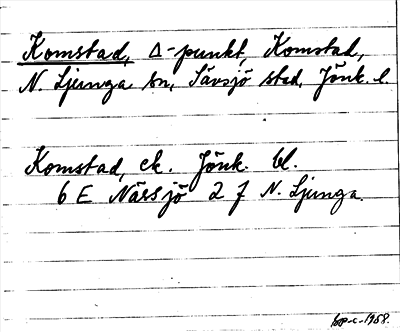 Komstad, Δ-punkt, Komstad,
N. Ljunga sn, Sävsjö stad, Jönk. l.
Komstad, ek. Jönk. bl.
6 E Nässjö 2 f N. Ljunga.
1958.